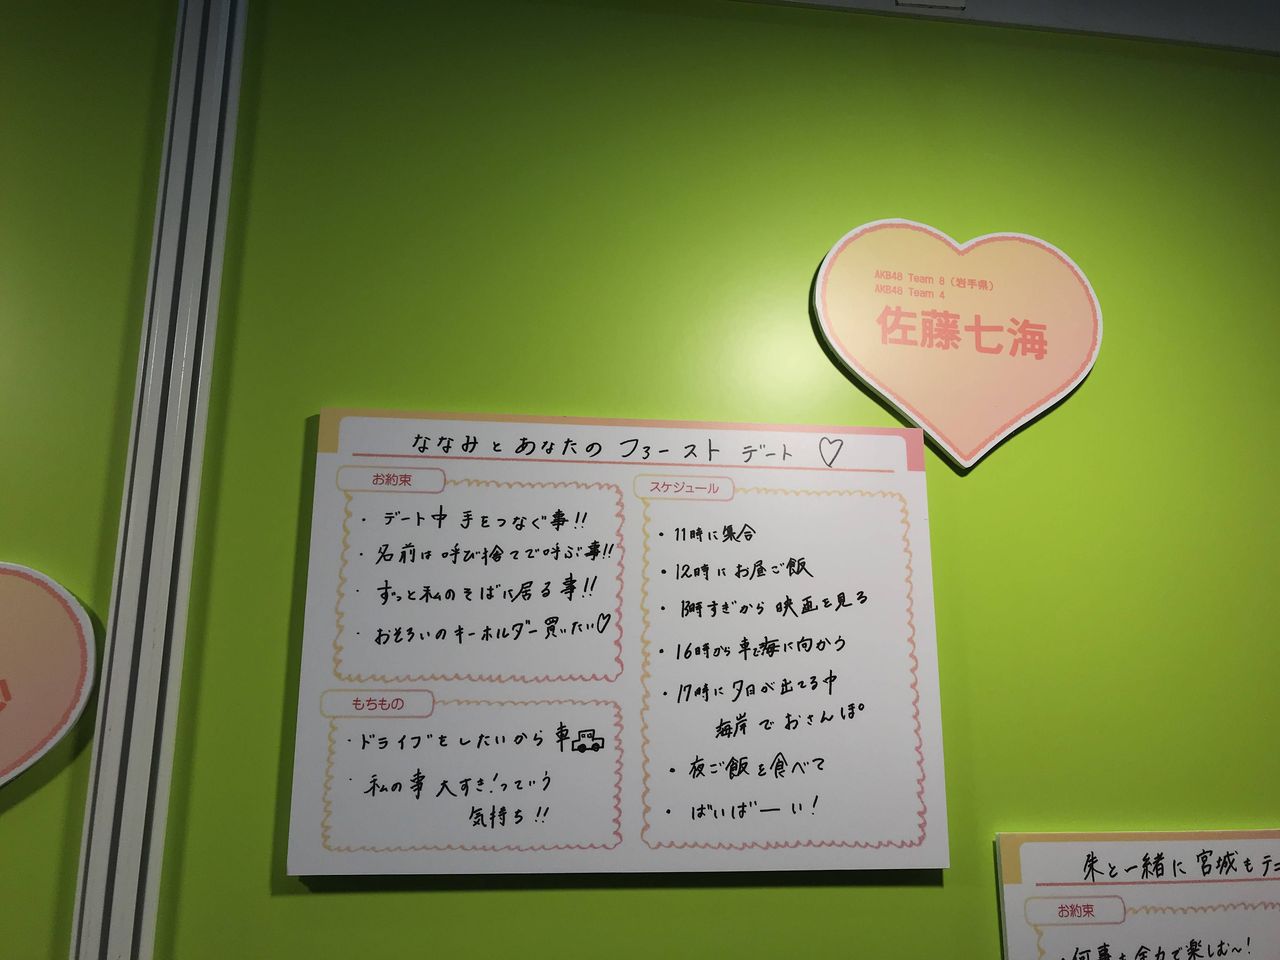 AKB48 Team 8（岩手県）
AKB48 Team 4
佐藤七海
ななみとあなたのファーストデート♡
お約束
・デート中手をつなぐ事!!
・名前は呼び捨てで呼ぶ事!!
・ずっと私のそばに居る事!!
・おそろいのキーホルダー買いたい♡
もちもの
・ドライブをしたいから車
・私の事大すき!っていう
気持ち!!
スケジュール
・11時に集合
・12時にお昼ご飯
・13時すぎから映画を見る
・16時から車で海に向かう
・17時に夕日が出てる中
海岸でおさんぽ
・夜ご飯を食べて
・ばいばーい!
朱と一緒に宮城も
お約束
・何事も全力で楽しむ～!